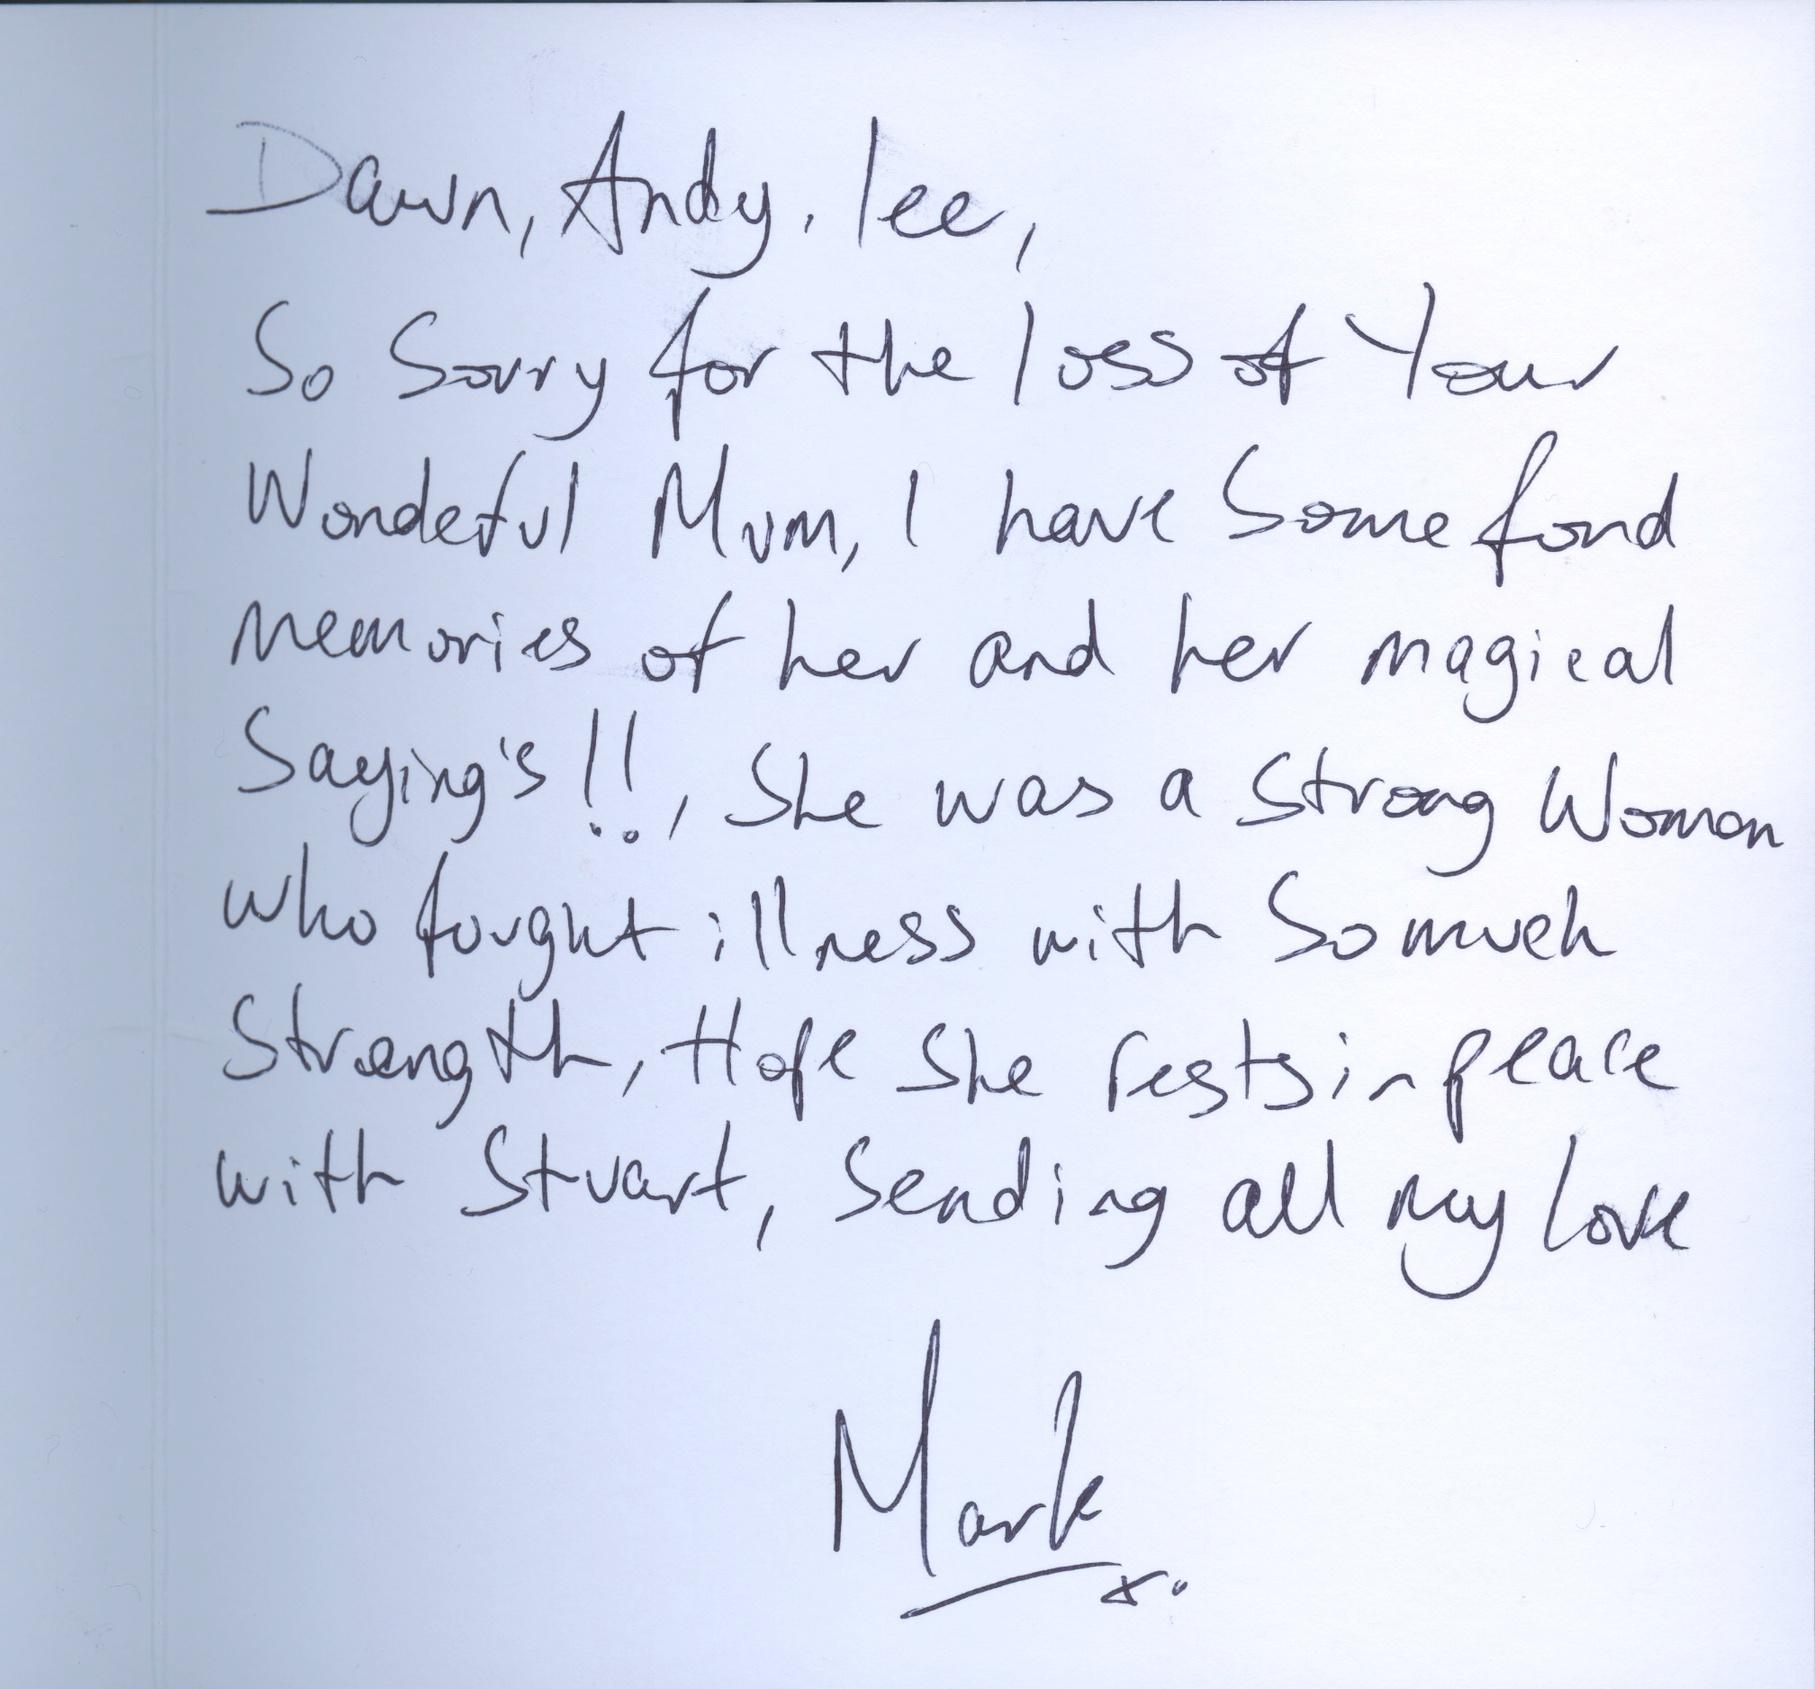 Dawn, Andy, Lee,
So Sorry for the loss of Your
Wondeful Mum, I have Some fond
memories of her and her magical
Saying's!!, She was a Strong Woman
who fought illness with So much
Strength, Hope She rests in peace
with Stuart, Sending all my love
Mark
x.